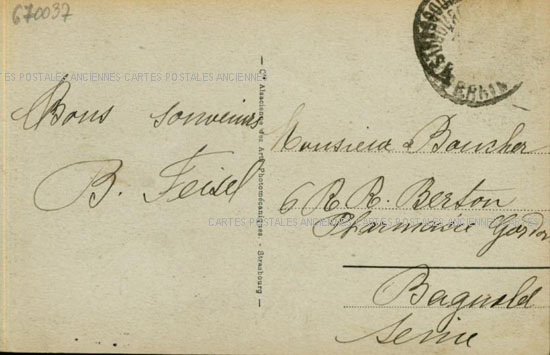 670037
STRASBOURG
B. RHIN
CARTES POSTALES ANCIENNES CARTES POSTALES ANCIENNES
Bons souvenirs
B. Feisel
Cie Alsacienne des Arts Photomécaniques. - Strasbourg
Monsieur Boucher
6 R. R. Berton
CARTES POSTALES ANCIENNES CARTES POSTALES ANCIENNES
Pharmacie Gordon
Seine